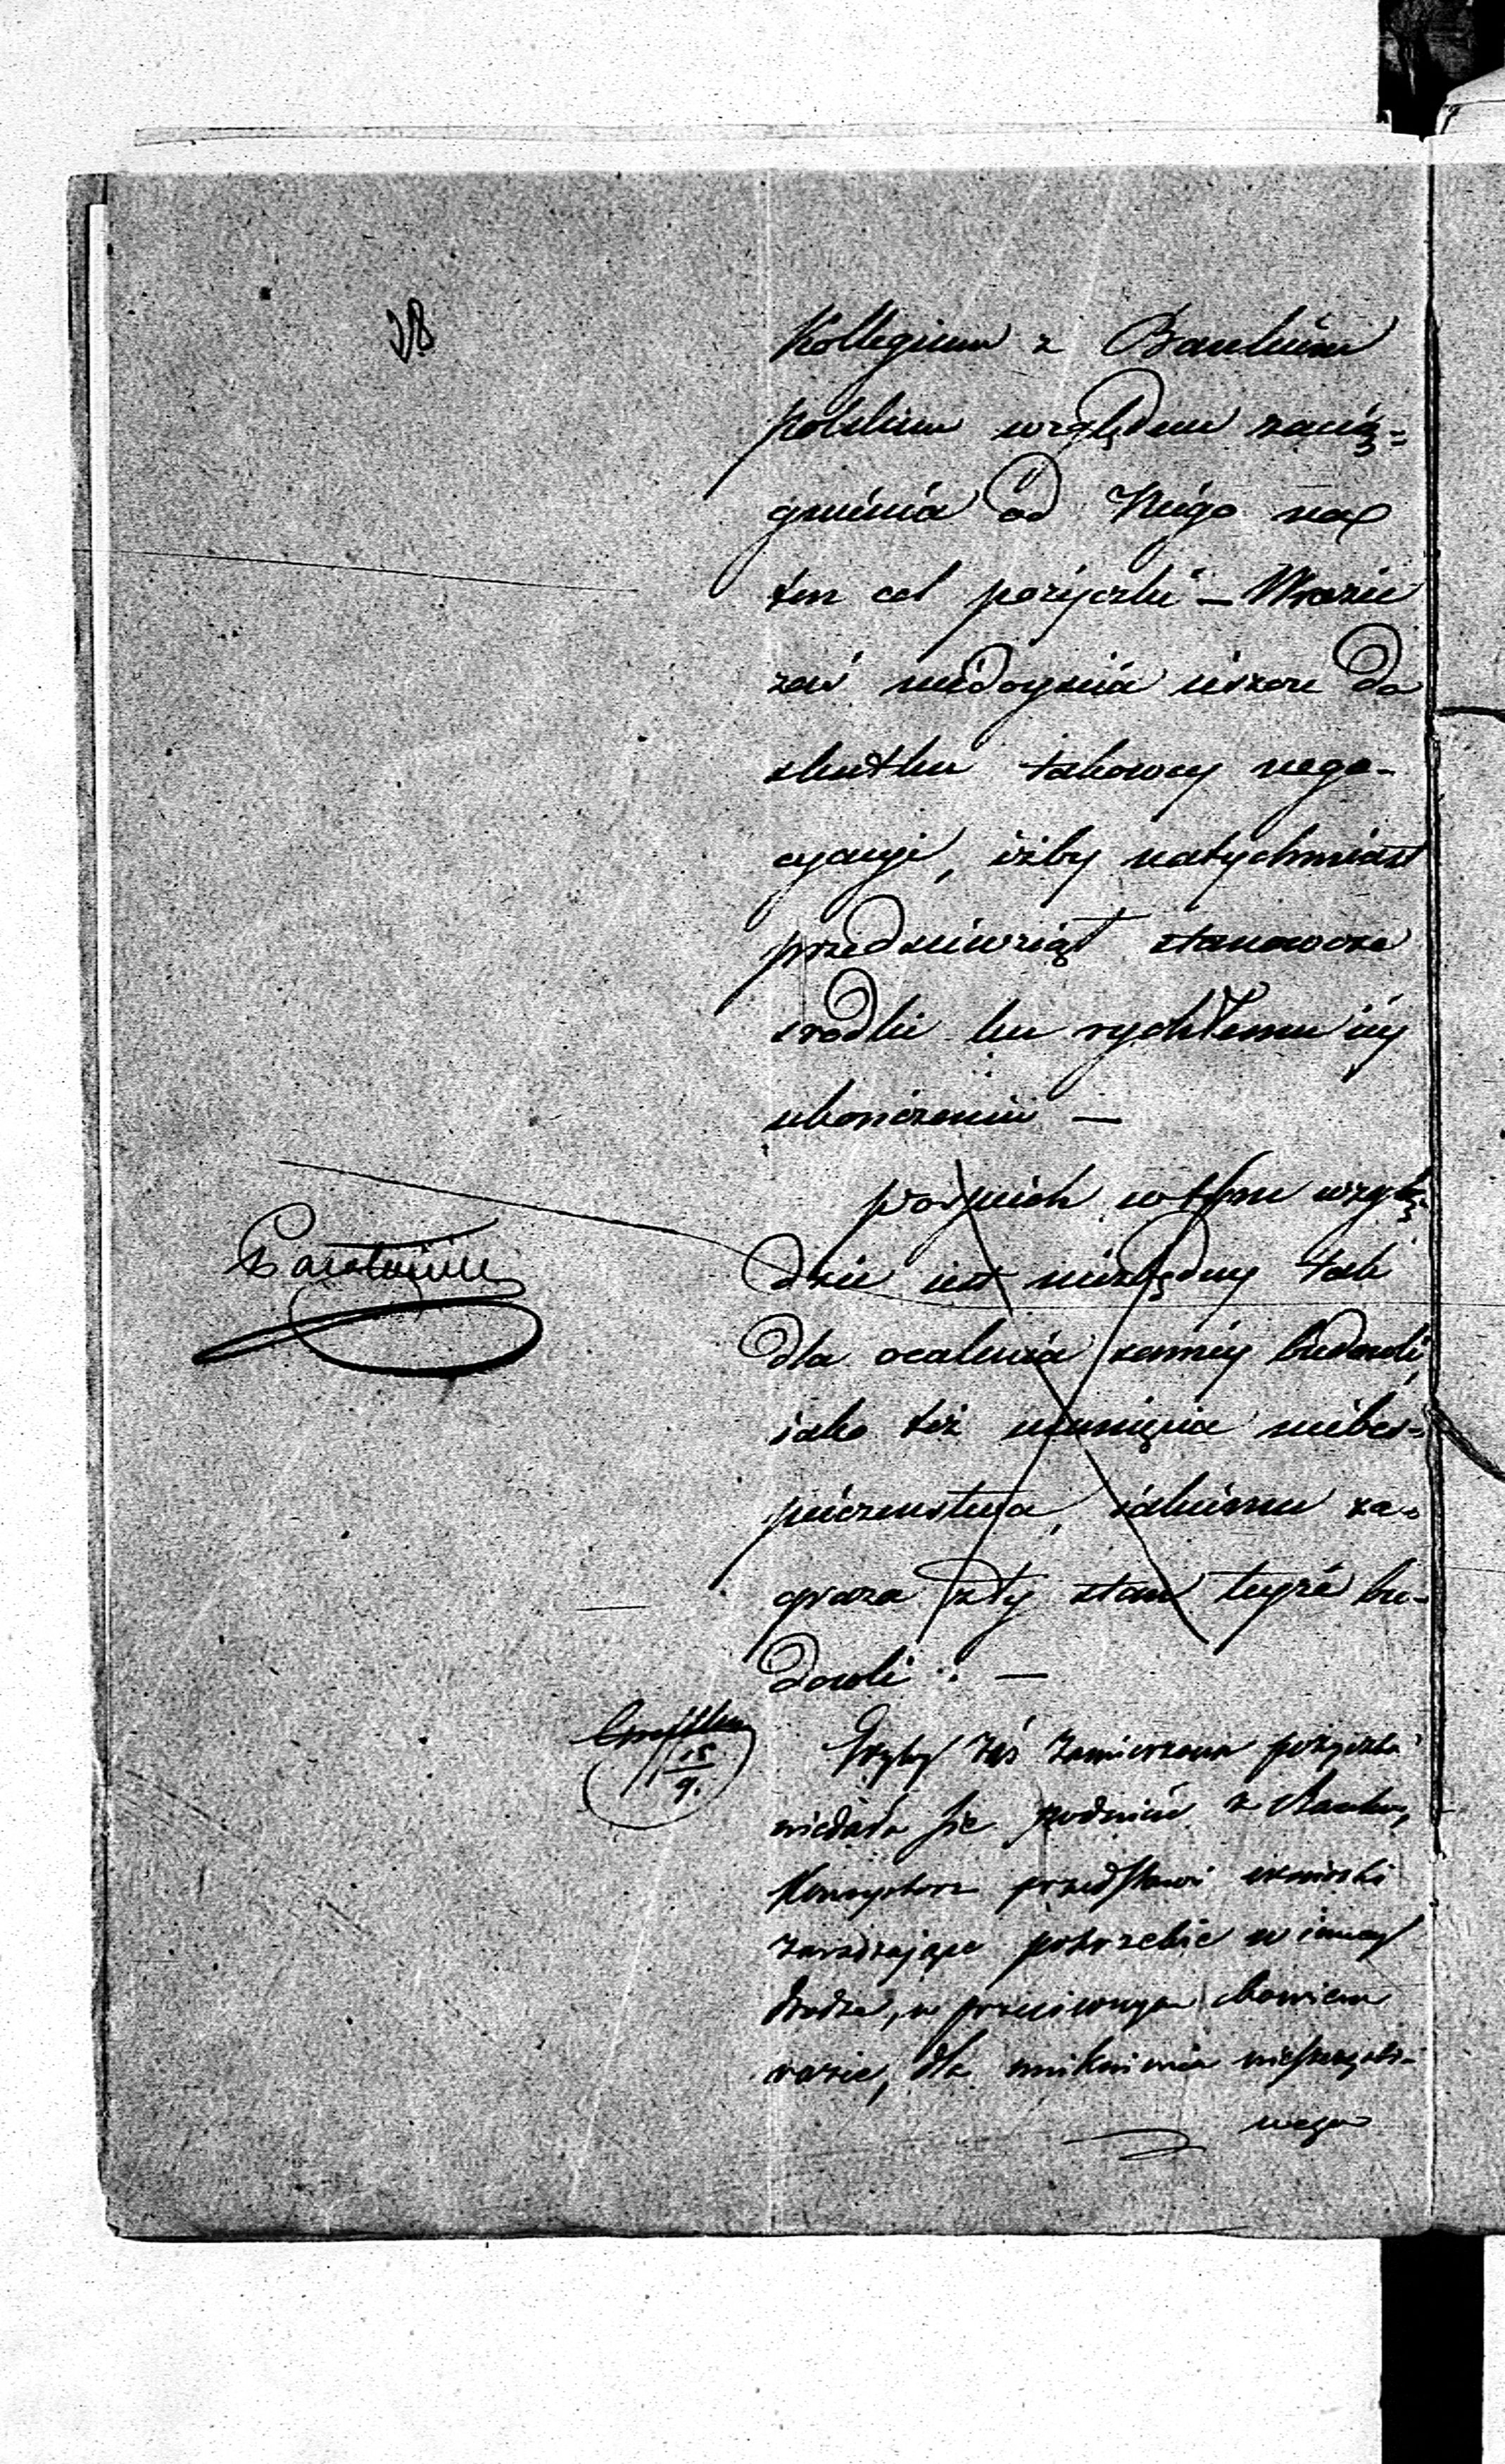 28
Kollegium z Bankiem
polskim względem zacią=
gnienia od Niego na
ten cel pożyczki — W razie
zaś niedoyścia ieszcze do
skutku takowey nego-
cyacyi, iżby natychmiast
przedsiewziął stanowcze
srodki ku rychłemu iey
ukończeniu —
pospiech w tym wzglę-
dzie iest niezbędny tak
dla ocalenia samey budowli,
iako też usunięcia niebes-
pieczenstwa, iakiemu za-
graża zły stan teyże bu-
dowli. —
15
9.
Gdyby zaś zamierzona pożyczka
niedała się podnieść z Banku,
Konsystorz przedstawi wnioski
zaradzające potrzebie w inney
drodze, w przeciwnym bowiem
razie, dla uniknienia nieszczęśli-
wego